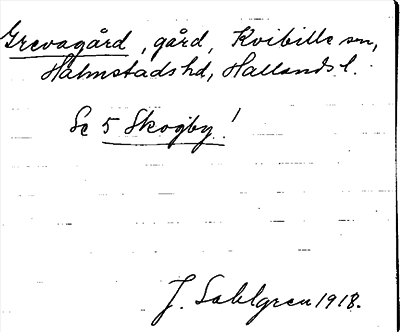 Grevagård, gård, Kvibille sn,
Halmstads hd, Hallands l.
Se 5 Skogby!
J. Sahlgren 1918.